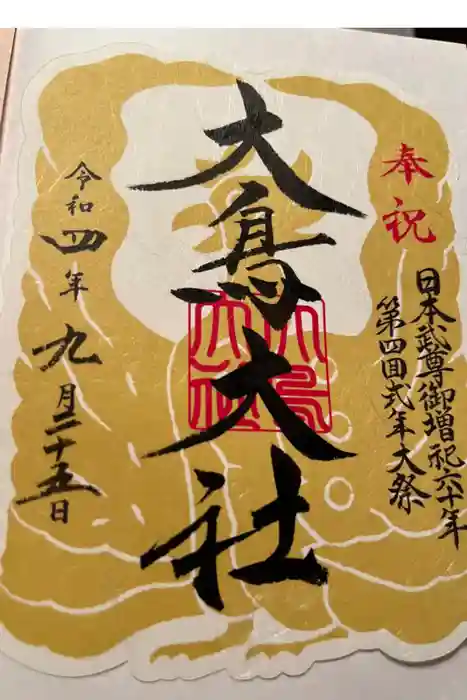 奉祝
日本武尊御増祀六十年
第四回式年大祭
大鳥大社
大鳥大社
令和四年
九月二十五日